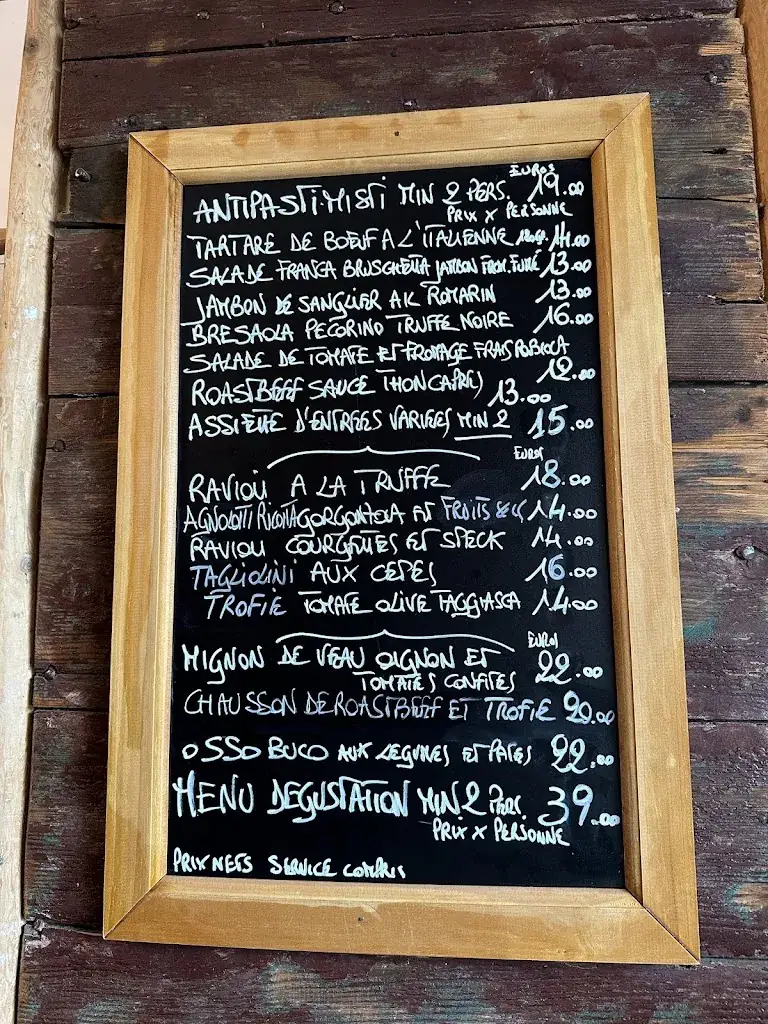 EUROS
ANTIPASTI MISTI MIN 2 PERS. 19.00
PRIX X PERSONNE
TARTARE DE BOEUF A L'ITALIENNE 120GR. 14.00
SALADE FRANCA BRUSCHETTA JAMBON FROM. FUMÉ 13.00
JAMBON DE SANGLIER AIL ROMARIN 13.00
BRESAOLA PECORINO TRUFFE NOIRE 16.00
SALADE DE TOMATE ET FROMAGE FRAIS ROBIOLA
12.00
ROASTBEEF SAUCE THON CAPRES 13.00
ASSIETTE D'ENTREES VARIEES MIN 2 15.00
EUROS
RAVIOLI A LA TRUFFE 18.00
AGNOLOTTI RICOTTA GORGONZOLA ET FRUITS SECS 14.00
RAVIOLI COURGETTES ET SPECK 14.00
TAGLIOLINI AUX CEPES 16.00
TROFIE TOMATE OLIVE TAGGIASCA 14.00
EUROS
MIGNON DE VEAU OIGNON ET 22.00
TOMATES CONFITES
CHAUSSON DE ROASTBEEF ET TROFIE 20.00
OSSO BUCO AUX LEGUMES ET PATES 22.00
MENU DEGUSTATION MIN 2 PERS. 39.00
PRIX X PERSONNE
PRIX NETS SERVICE COMPRIS